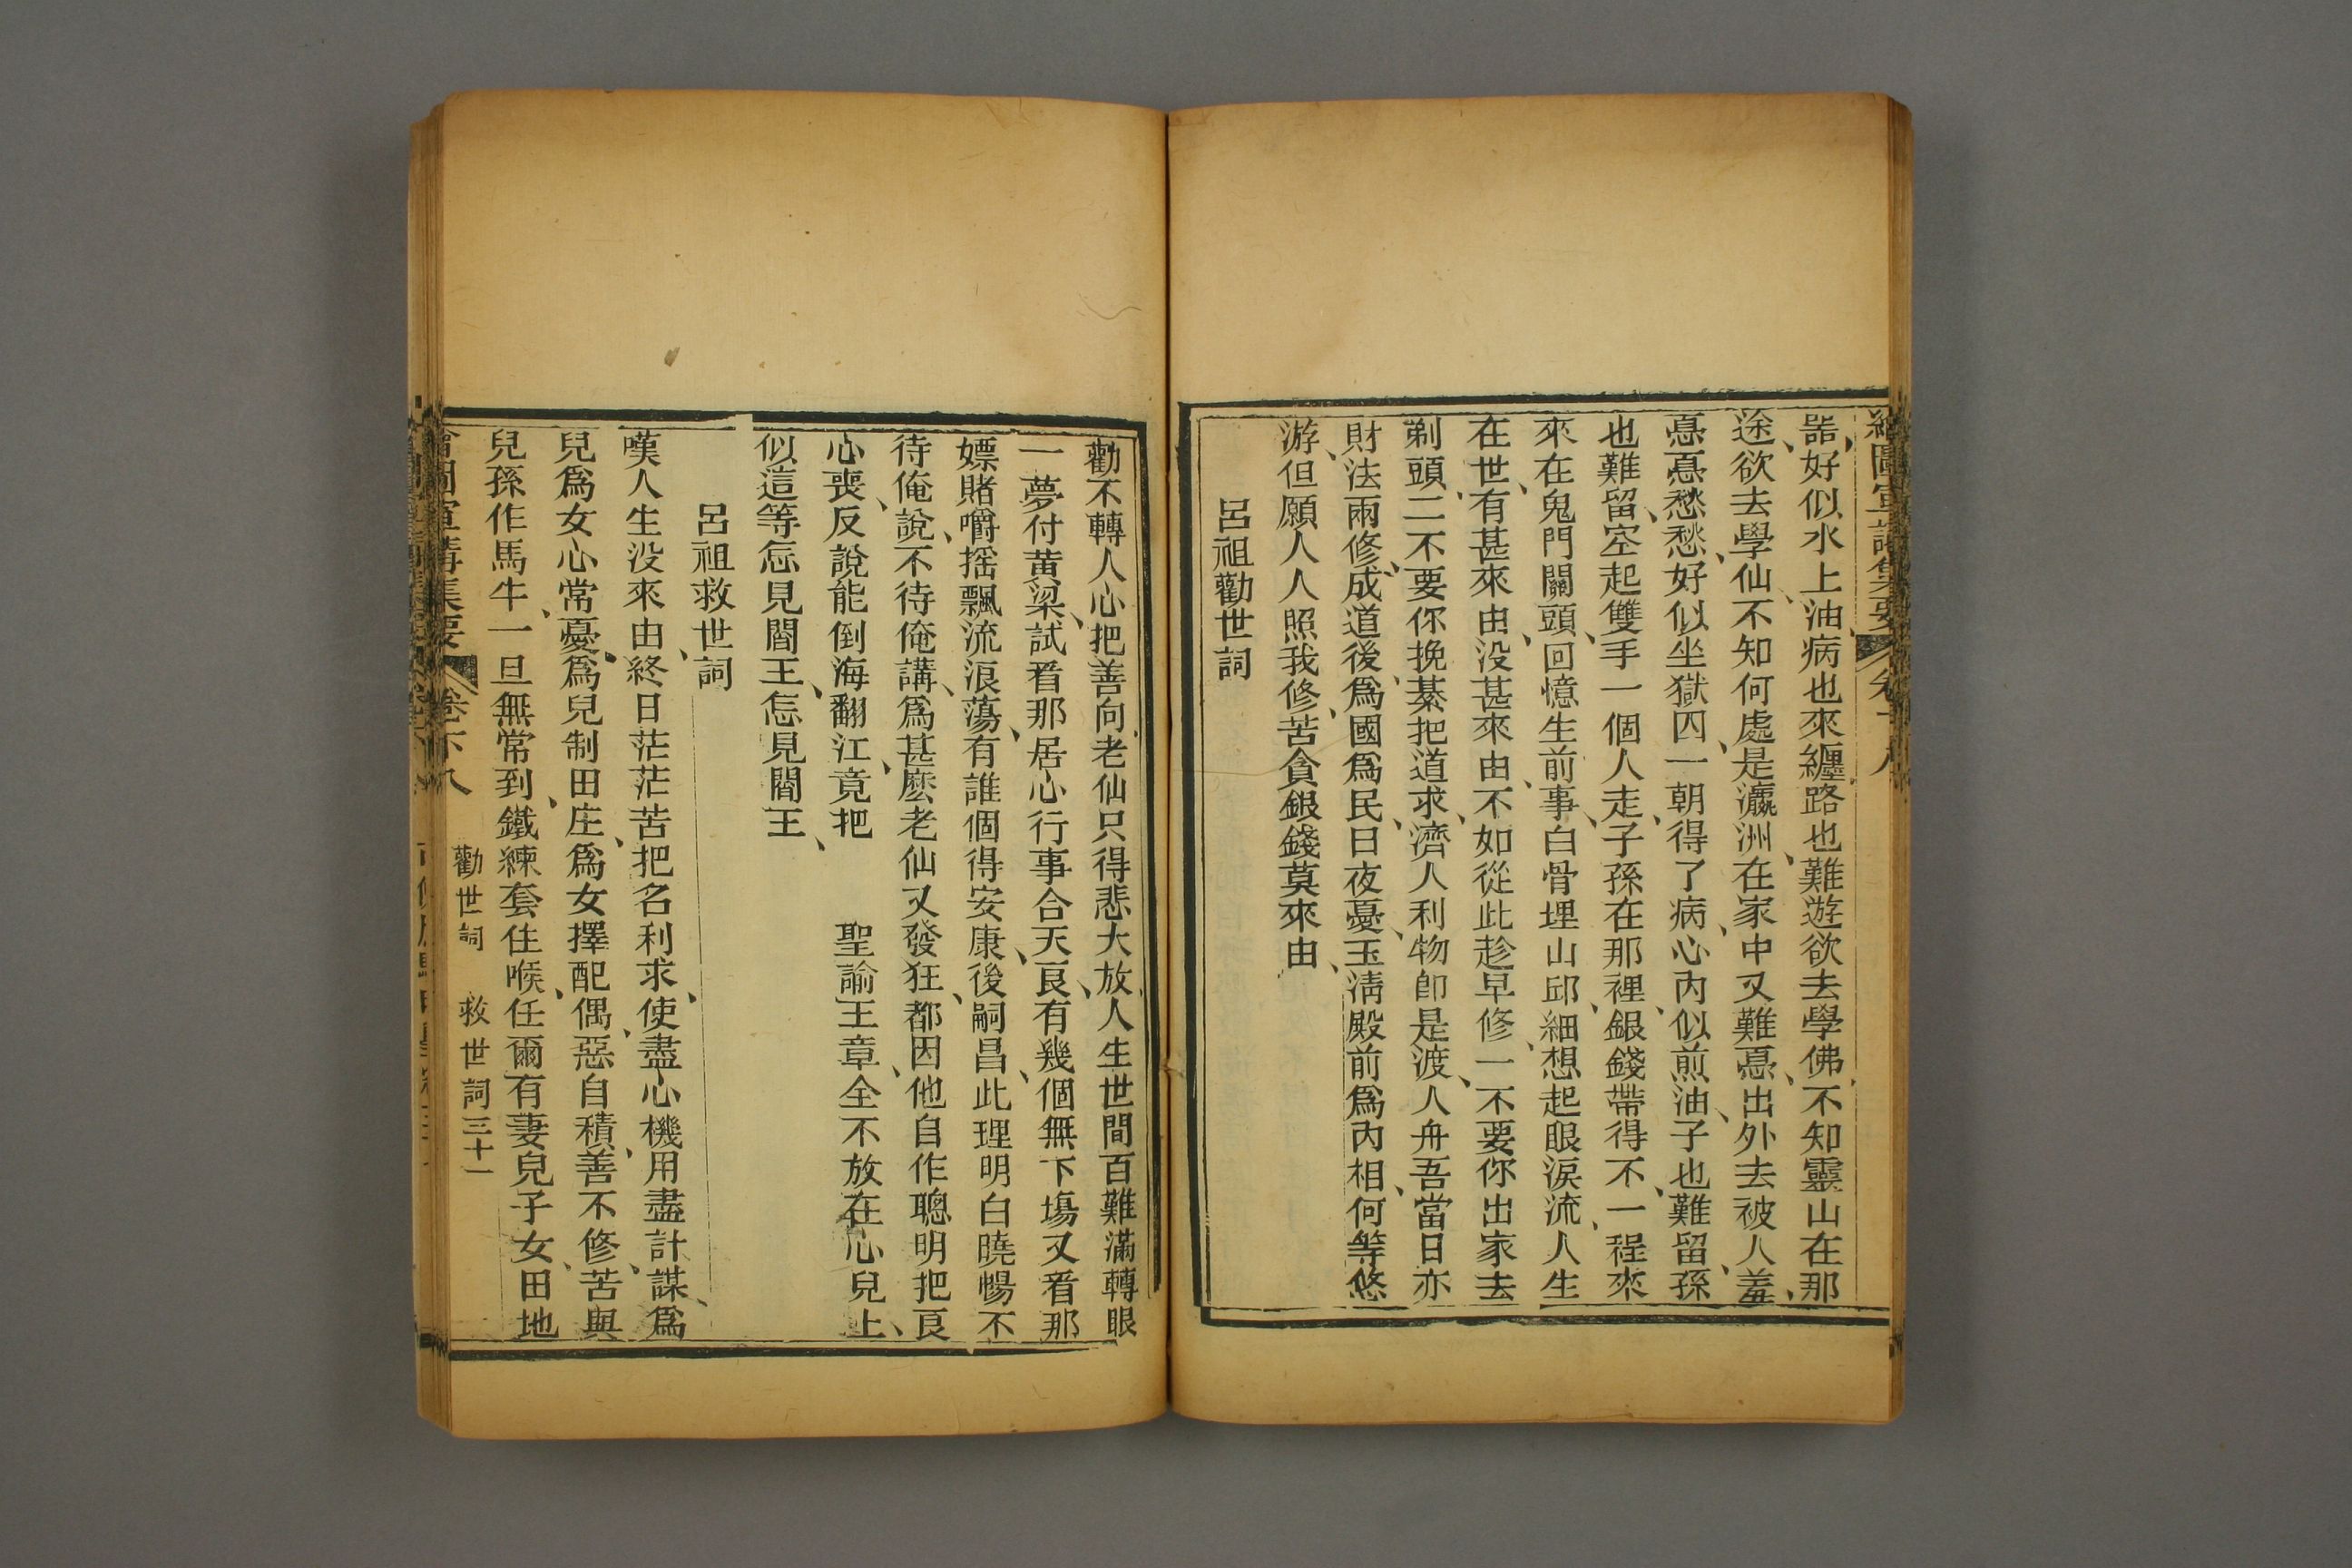 繪圖宣講集要 卷十八
噐好似水上油病也來纏路也難遊欲去學佛不知靈山在那
途欲去學仙不知何處是瀛洲在家中又難慐出外去被人羞
慐慐愁愁好似坐獄囚一朝得了病心內似煎油子也難留孫
也難留空起雙手一個人走子孫在那裡銀錢帶得不一程來
來在鬼門關頭回憶生前事白骨埋山邱細想起眼淚流人生
在世有甚來由没甚來由不如從此趁早修一不要你出家去
剃頭二不要你挽綦把道求濟人利物卽是渡人舟吾當日亦
財法兩修成道後爲國爲民日夜憂玉淸殿前爲內相何等悠
游但願人人照我修苦貪銀錢莫來由
呂祖勸世詞
勸不轉人心把善向老仙只得悲大放人生世間百難滿轉眼
一夢付黃梁試看那居心行事合天良有幾個無下塲又看那
嫖賭嚼摇飄流浪蕩有誰個得安康後嗣昌此理明白曉暢不
待俺說不待俺講爲甚麽老仙又發狂都因他自作聰明把良
心喪反說能倒海翻江竟把 聖諭王章全不放在心兒上
似這等怎見閻王怎見閻王
呂祖救世詞
嘆人生没來由終日茫茫苦把名利求使盡心機用盡計謀爲
兒爲女心常憂爲兒制田庄爲女擇配偶惡自積善不修苦與
兒孫作馬牛一旦無常到鐵練套住喉任爾有妻兒子女田地
繪圖宣講集要 卷下八 勸世詞 救世詞 三十一